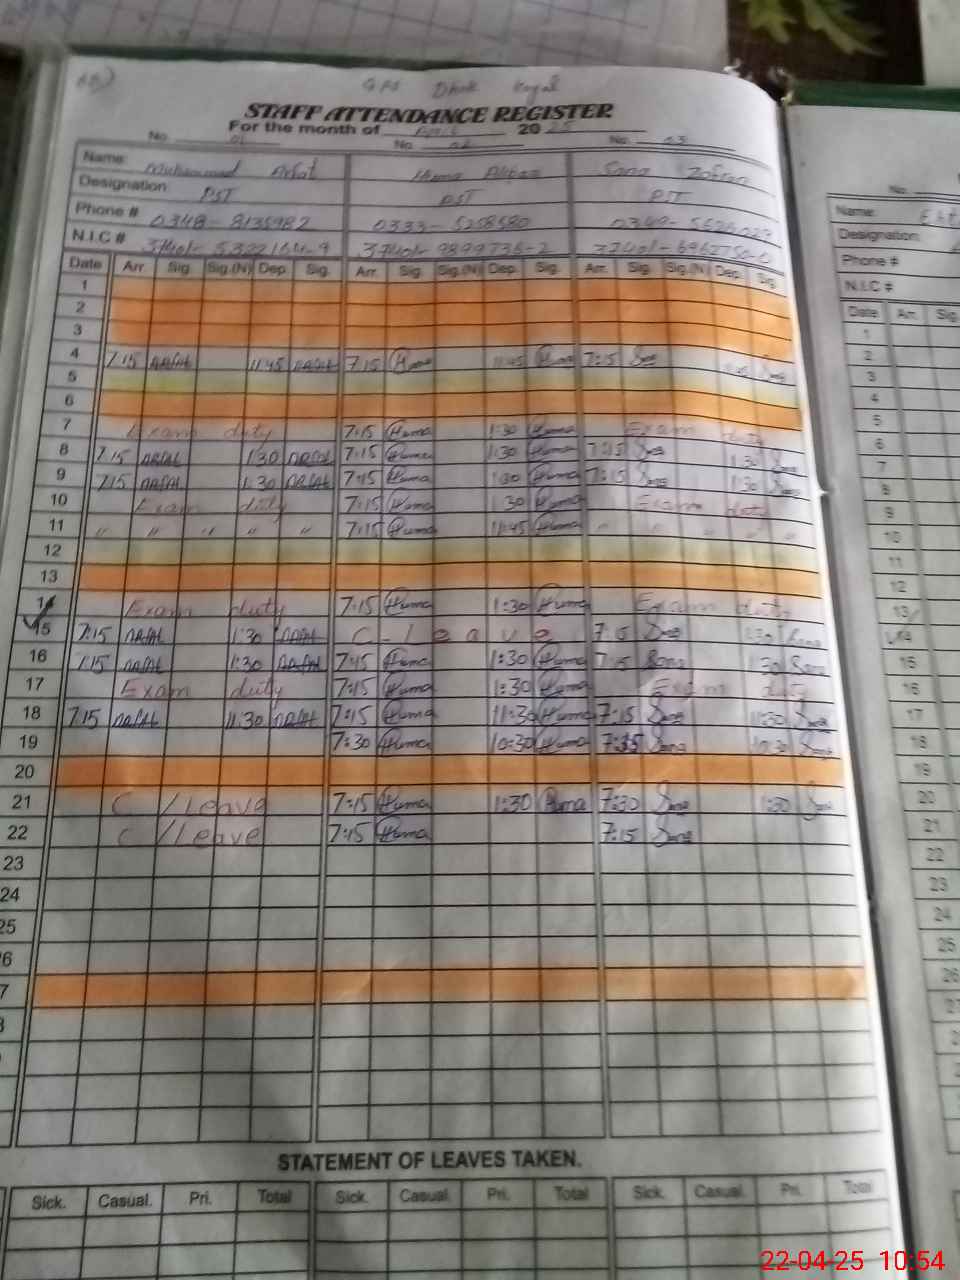 GPS Dhok
STAFF ATTENDANCE REGISTER
For the month of April 2025
No. 01 No. 02 No. 03
Name: Muhammad Arfat Huma Sana
Designation: PST PST PST
Phone # 0348-8135982 0333-5258580 0349-
N.I.C # 37401- 37401-9899736-2 37401-6962750-0
Date Arr. Sig. Sig.(N) Dep. Sig. Arr. Sig. Sig.(N) Dep. Sig. Arr. Sig. Sig.(N) Dep. Sig.
1
2
3
4 7:15 Arfat 11:45 Arfat 7:15 Huma 11:45 Huma 7:15 Sana 11:45 Sana
5
6
7 Exam duty 7:15 Huma 1:30 Huma Exam duty
8 7:15 Arfat 1:30 Arfat 7:15 Huma 1:30 Huma 7:15 Sana 1:30 Sana
9 7:15 Arfat 1:30 Arfat 7:15 Huma 1:30 Huma 7:15 Sana 1:30 Sana
10 Exam duty 7:15 Huma 1:30 Huma Exam duty
11 " " " " " 7:15 Huma 11:45 Huma " " " " "
12
13
14 Exam duty 7:15 Huma 1:30 Huma Exam duty
15 7:15 Arfat 1:30 Arfat C-leave 7:15 Sana 1:30 Sana
16 7:15 Arfat 1:30 Arfat 7:15 Huma 1:30 Huma 7:15 Sana 1:30 Sana
17 Exam duty 7:15 Huma 1:30 Huma Exam duty
18 7:15 Arfat 11:30 Arfat 7:15 Huma 11:30 Huma 7:15 Sana 11:30 Sana
19 7:30 Huma 10:30 Huma 7:35 Sana 10:30 Sana
20
21 C/Leave 7:15 Huma 1:30 Huma 7:30 Sana 1:30 Sana
22 C/Leave 7:15 Huma 7:15 Sana
23
24
25
6
7
8
STATEMENT OF LEAVES TAKEN.
Sick. Casual. Pri. Total Sick. Casual. Pri. Total Sick. Casual. Pri. Total
No.
Name:
Designation:
Phone #
N.I.C #
Date Arr. Sig
1
2
3
4
5
6
7
8
9
10
11
12
13
14
15
16
17
18
19
20
21
22
23
24
25
26
22-04-25 10:54